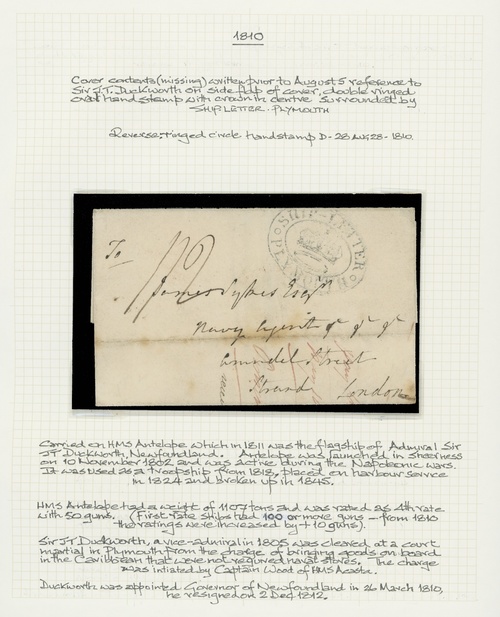 1810
Cover contents (missing) written prior to August 5 reference to
Sir J.T. Duckworth on side flap of cover, double ringed
oval handstamp with crown in centre surrounded by
SHIP LETTER - PLYMOUTH
Reverse: ringed circle handstamp D - 28 AU 28 - 1810.
SHIP-LETTER
PLYMOUTH
To
James Sykes Esqr
Navy Agent &c &c &c
Arundel Street
Strand London
Carried on HMS Antelope which in 1811 was the flagship of Admiral Sir
J.T. Duckworth, Newfoundland. Antelope was launched in Sheerness
on 10 November 1802 and was active during the Napoleonic wars.
It was used as a troopship from 1818, placed on harbour service
in 1824 and broken up in 1845.
HMS Antelope had a weight of 1107 tons and was rated as 4th rate
with 50 guns. (First rate ships had 100 or more guns - from 1810
the ratings were increased by + 10 guns).
Sir J.T. Duckworth, a vice-admiral in 1805 was cleared at a court
martial in Plymouth from the charge of bringing goods on board
in the Caribbean that were not required naval stores. The charge
was initiated by Captain Wood of HMS Acasta.
Duckworth was appointed Governor of Newfoundland in 26 March 1810,
he resigned on 2 Dec. 1812.